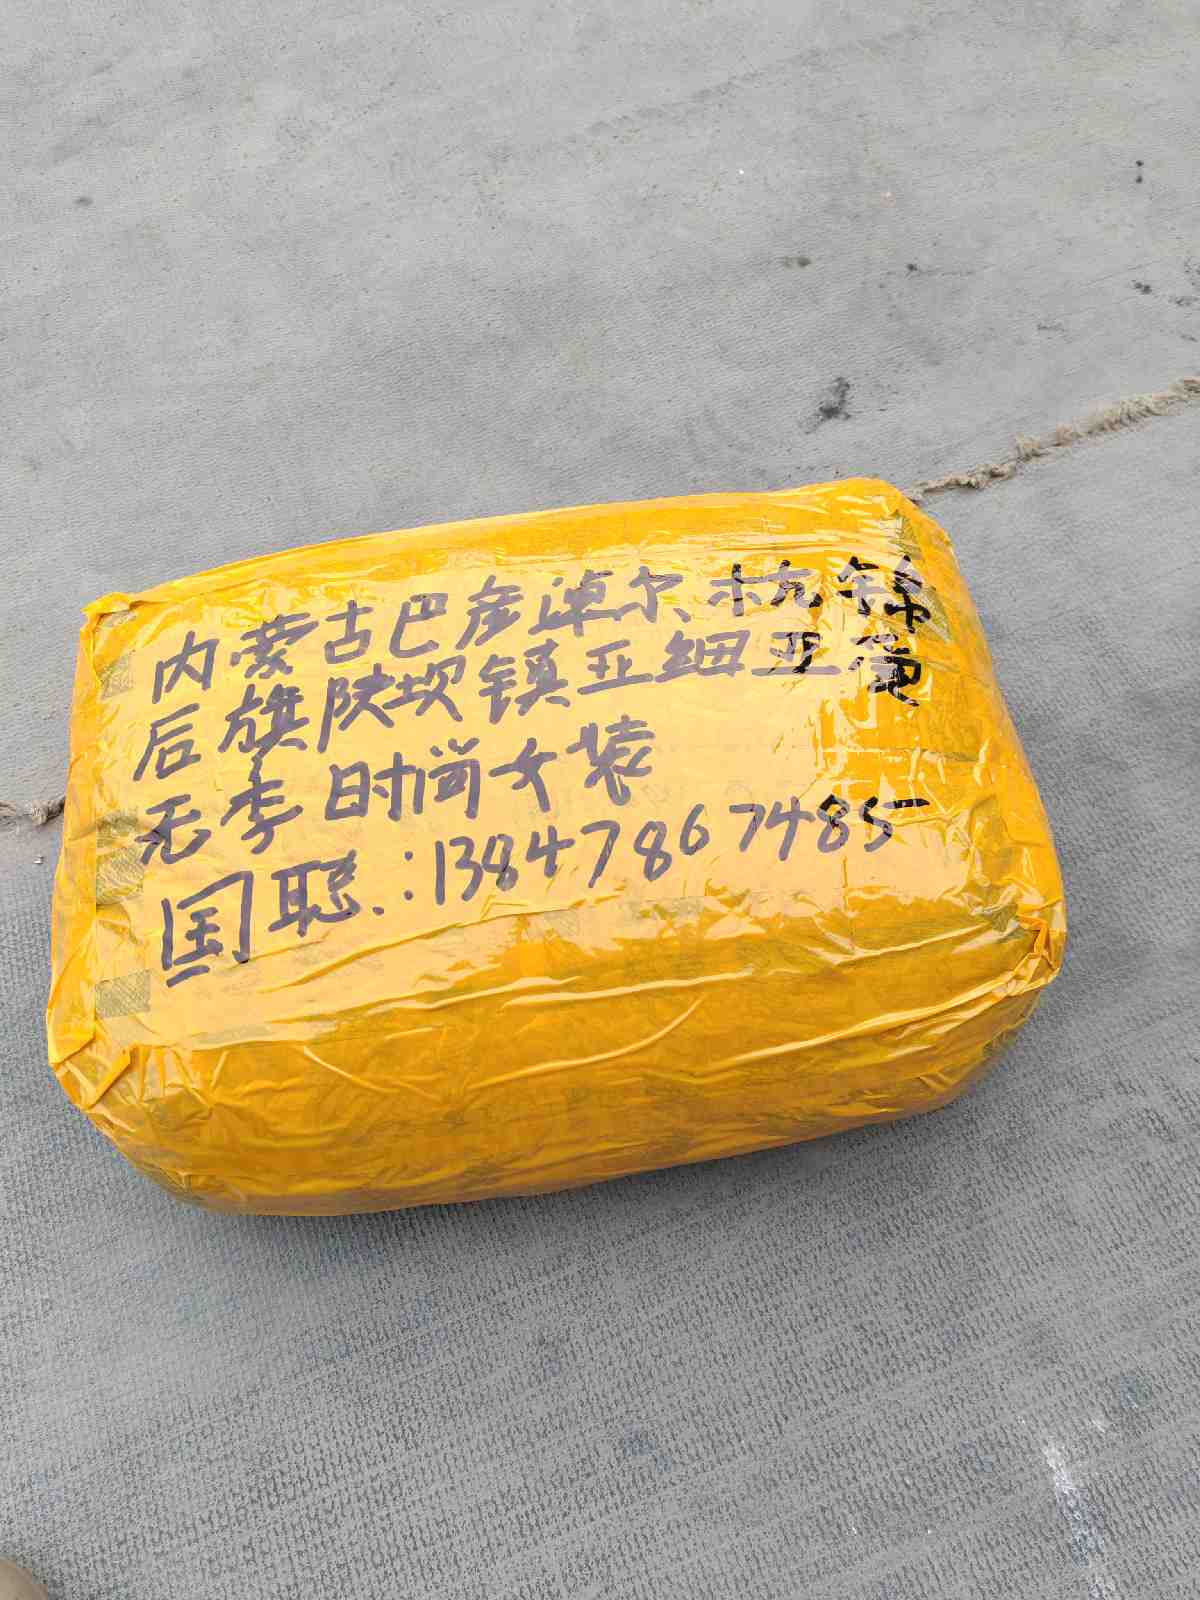 内蒙古巴彦淖尔杭锦
后旗陕坝镇亚细亚商
无季时尚女装
国聪:13847867485